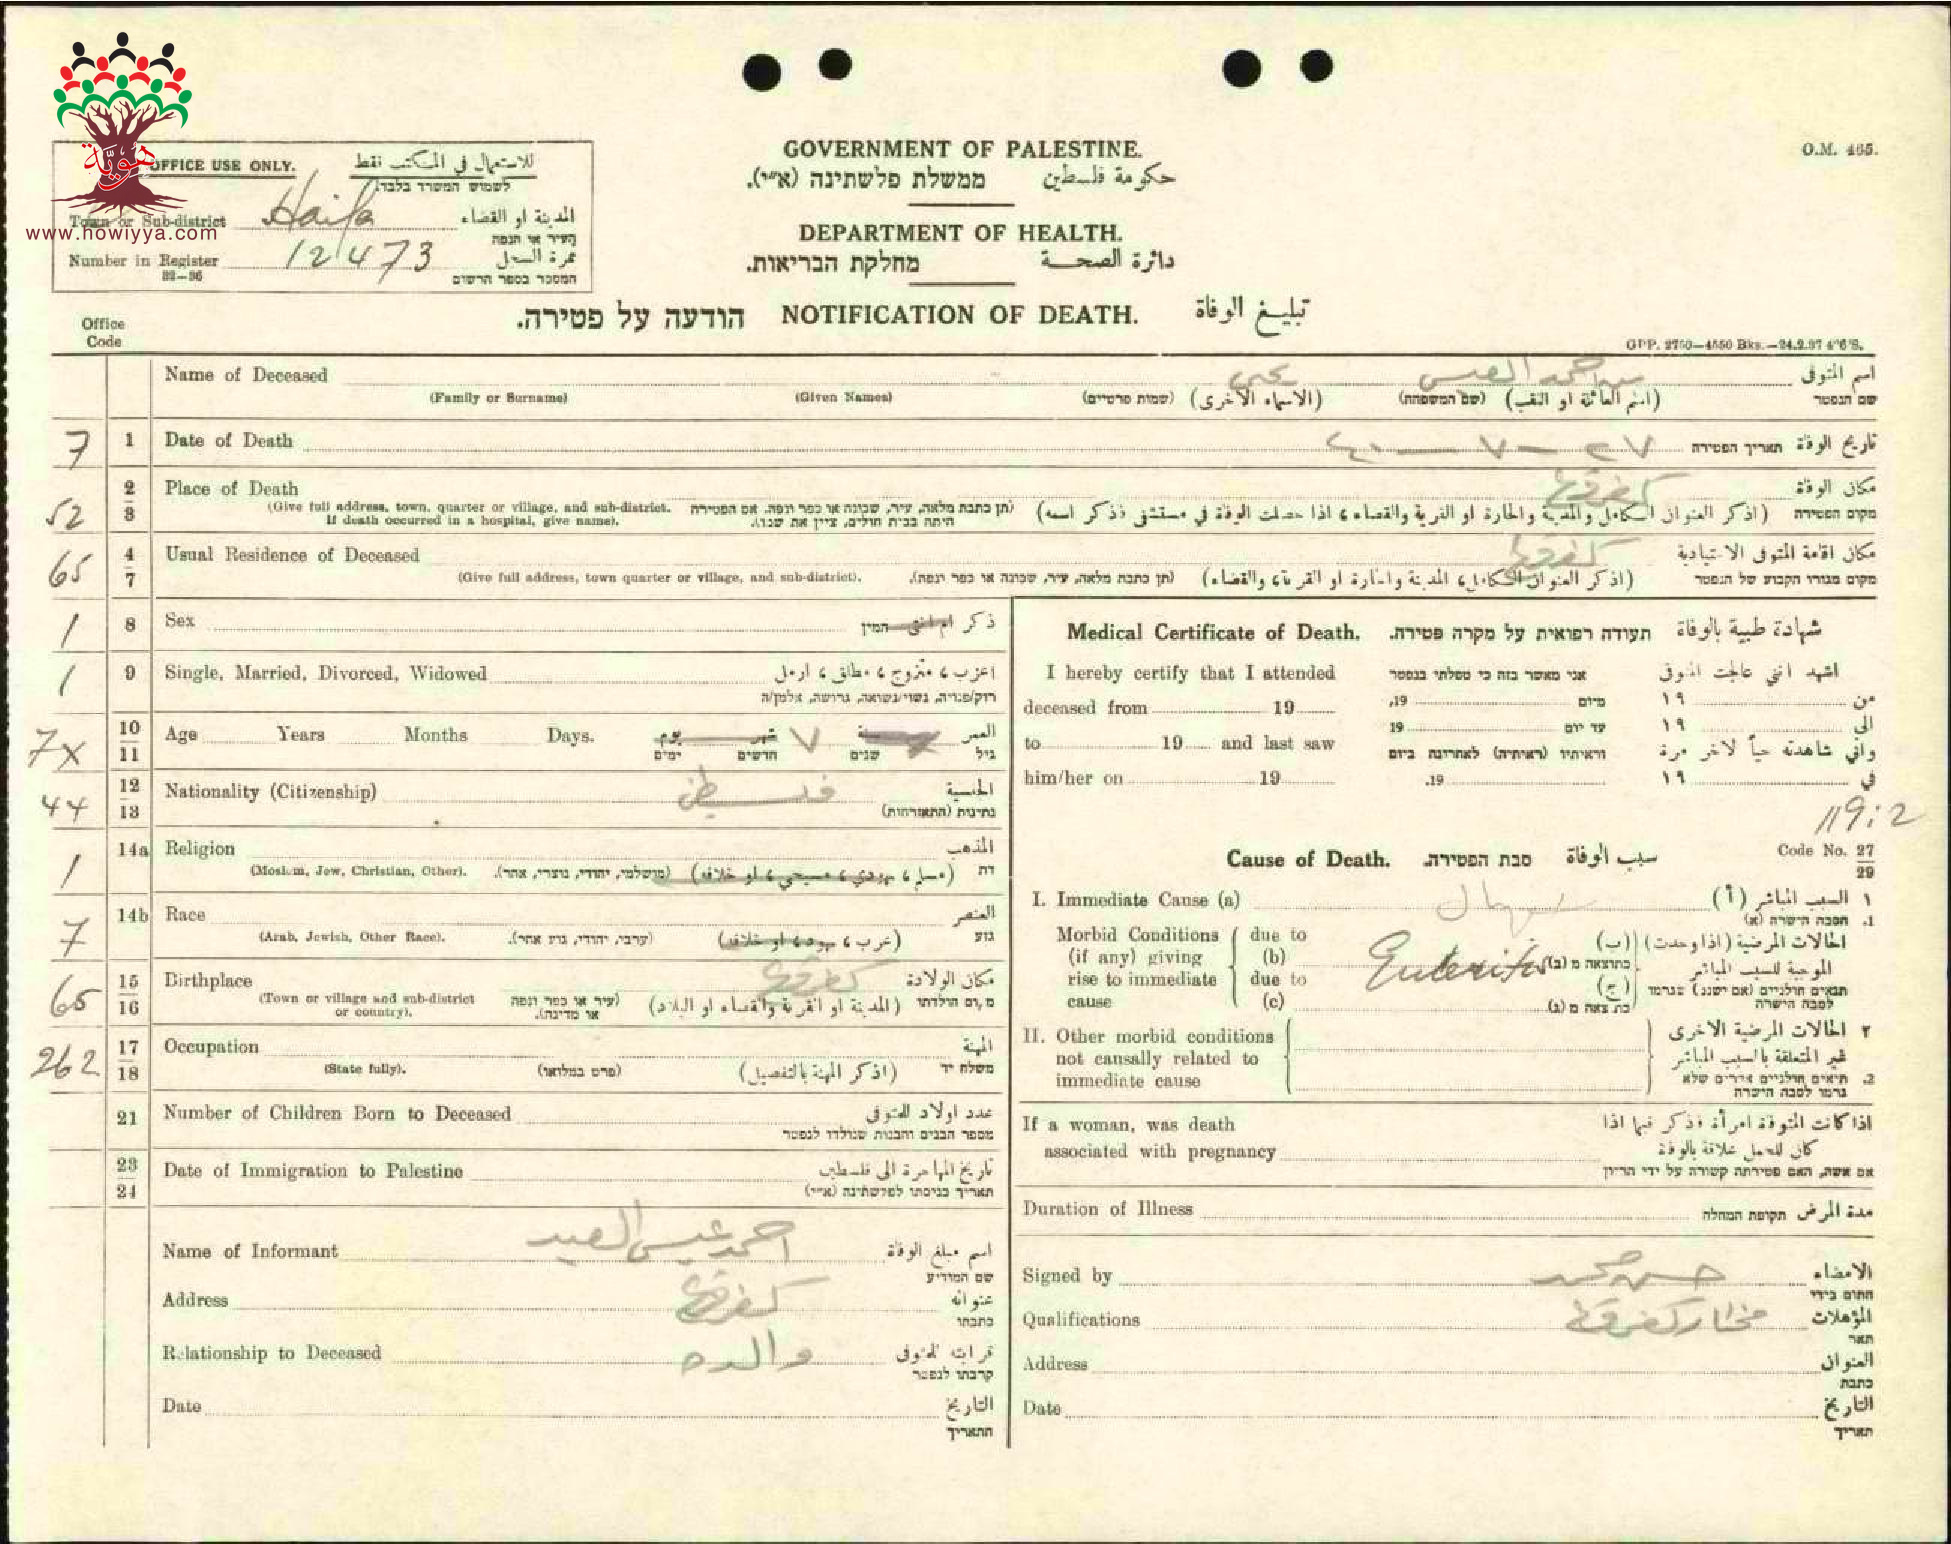 هوية
www.howiyya.com
O.M. 465.
OFFICE USE ONLY. للاستعمال في المكتب فقط
לשמוש המשרד בלבד
Town or Sub-district Haifa المدينة او القضاء
העיר או הנפה
Number in Register 12473 نمرة السجل
32-36 המספר בספר הרשום
GOVERNMENT OF PALESTINE.
ממשלת פלשתינה (א״י). حكومة فلسطين
DEPARTMENT OF HEALTH.
מחלקת הבריאות. دائرة الصحة
הודעה על פטירה. NOTIFICATION OF DEATH. تبليغ الوفاة
Office
Code
GPP. 2750-4550 Bks.-24.2.37
Name of Deceased يحيى احمد العيسى اسم المتوفى
(Family or Surname) (Given Names) (שמות פרטיים) (الاسماء الاخرى) (שם המשפחה) (اسم العائلة او اللقب) שם הנפטר
7 1 Date of Death ٢٧ - ٧ - ٤٠ תאריך הפטירה تاريخ الوفاة
52 2 3 Place of Death كفرقرع مكان الوفاة
(Give full address, town, quarter or village, and sub-district. If death occurred in a hospital, give name).
(תן כתבת מלאה, עיר, שכונה או כפר ונפה. אם הפטירה היתה בבית חולים, ציין את שמו).
(اذكر العنوان الكامل والمدينة والحارة او القرية والقضاء، اذا حصلت الوفاة في مستشفى فذكر اسمه) מקום הפטירה
65 4 7 Usual Residence of Deceased كفرقرع مكان اقامة المتوفى الاعتيادية
(Give full address, town quarter or village, and sub-district). (תן כתבת מלאה, עיר, שכונה או כפר ונפה). (اذكر العنوان الكامل، المدينة والحارة او القرية، والقضاء) מקום מגורו הקבוע של הנפטר
1 8 Sex המין ذكر ام انثى
1 9 Single, Married, Divorced, Widowed اعزب، متزوج، مطلق، ارمل
רוק/פנויה, נשוי/נשואה, גרושה, אלמן/ה
7x 10 11 Age Years Months Days. يوم شهر ٧ سنة العمر
ימים חדשים שנים גיל
44 12 13 Nationality (Citizenship) فلسطيني الجنسية
נתינות (התאזרחות)
1 14a Religion المذهب
(Moslem, Jew, Christian, Other). (מושלמי, יהודי, נוצרי, אחר). (مسلم، يهودي، مسيحي، او خلافه) דת
7 14b Race العنصر
(Arab, Jewish, Other Race). (ערבי, יהודי, גזע אחר). (عرب، يهود، او خلافه) גזע
65 15 16 Birthplace كفرقرع مكان الولادة
(Town or village and sub-district or country). (עיר או כפר ונפה או מדינה). (المدينة او القرية والقضاء او البلاد) מקום הולדתו
262 17 18 Occupation المهنة
(State fully). (פרט במלואו) (اذكر المهنة بالتفصيل) משלח יד
21 Number of Children Born to Deceased عدد اولاد المتوفى
מספר הבנים והבנות שנולדו לנפטר
23 24 Date of Immigration to Palestine تاريخ المهاجرة الى فلسطين
תאריך כניסתו לפלשתינה (א״י)
Name of Informant احمد عيسى اسم مبلغ الوفاة
שם המודיע
Address كفرقرع عنوانه
כתבתו
Relationship to Deceased والده قرابته للمتوفى
קרבתו לנפטר
Date التاريخ
התאריך
Medical Certificate of Death. תעודה רפואית על מקרה פטירה. شهادة طبية بالوفاة
I hereby certify that I attended אני מאשר בזה כי טפלתי בנפטר اشهد انني عالجت المتوفى
deceased from 19 19, מיום ١٩ من
to 19 and last saw 19 עד יום ١٩ الى
וראיתיו (ראיתיה) לאחרונה ביום واني شاهدته حياً لآخر مرة
him/her on 19 19. ١٩ في
119:2
Cause of Death. סבת הפטירה. سبب الوفاة Code No. 27 29
I. Immediate Cause (a) اسهال ١ السبب المباشر (أ)
1. הסבה הישרה (א)
Morbid Conditions (if any) giving rise to immediate cause due to (b) due to (c) Enteritis
الحالات المرضية (اذا وجدت) الموجبة للسبب المباشر (ب) (ج)
כתוצאה מ (ב)
תנאים חולניים (אם ישנם) שגרמו לסבה הישרה
כתוצאה מ (ג)
II. Other morbid conditions not causally related to immediate cause
٢ الحالات المرضية الاخرى غير المتعلقة بالسبب المباشر
2. תנאים חולניים אחרים שלא גרמו לסבה הישרה
If a woman, was death associated with pregnancy
اذا كانت المتوفاة امرأة فذكر فيما اذا كان للحمل علاقة بالوفاة
אם אשה, האם פטירתה קשורה על ידי הריון
Duration of Illness תקופת המחלה مدة المرض
Signed by حسن محمد الامضاء
חתום בידי
Qualifications مختار كفرقرع المؤهلات
תאר
Address العنوان
כתבת
Date التاريخ
תאריך